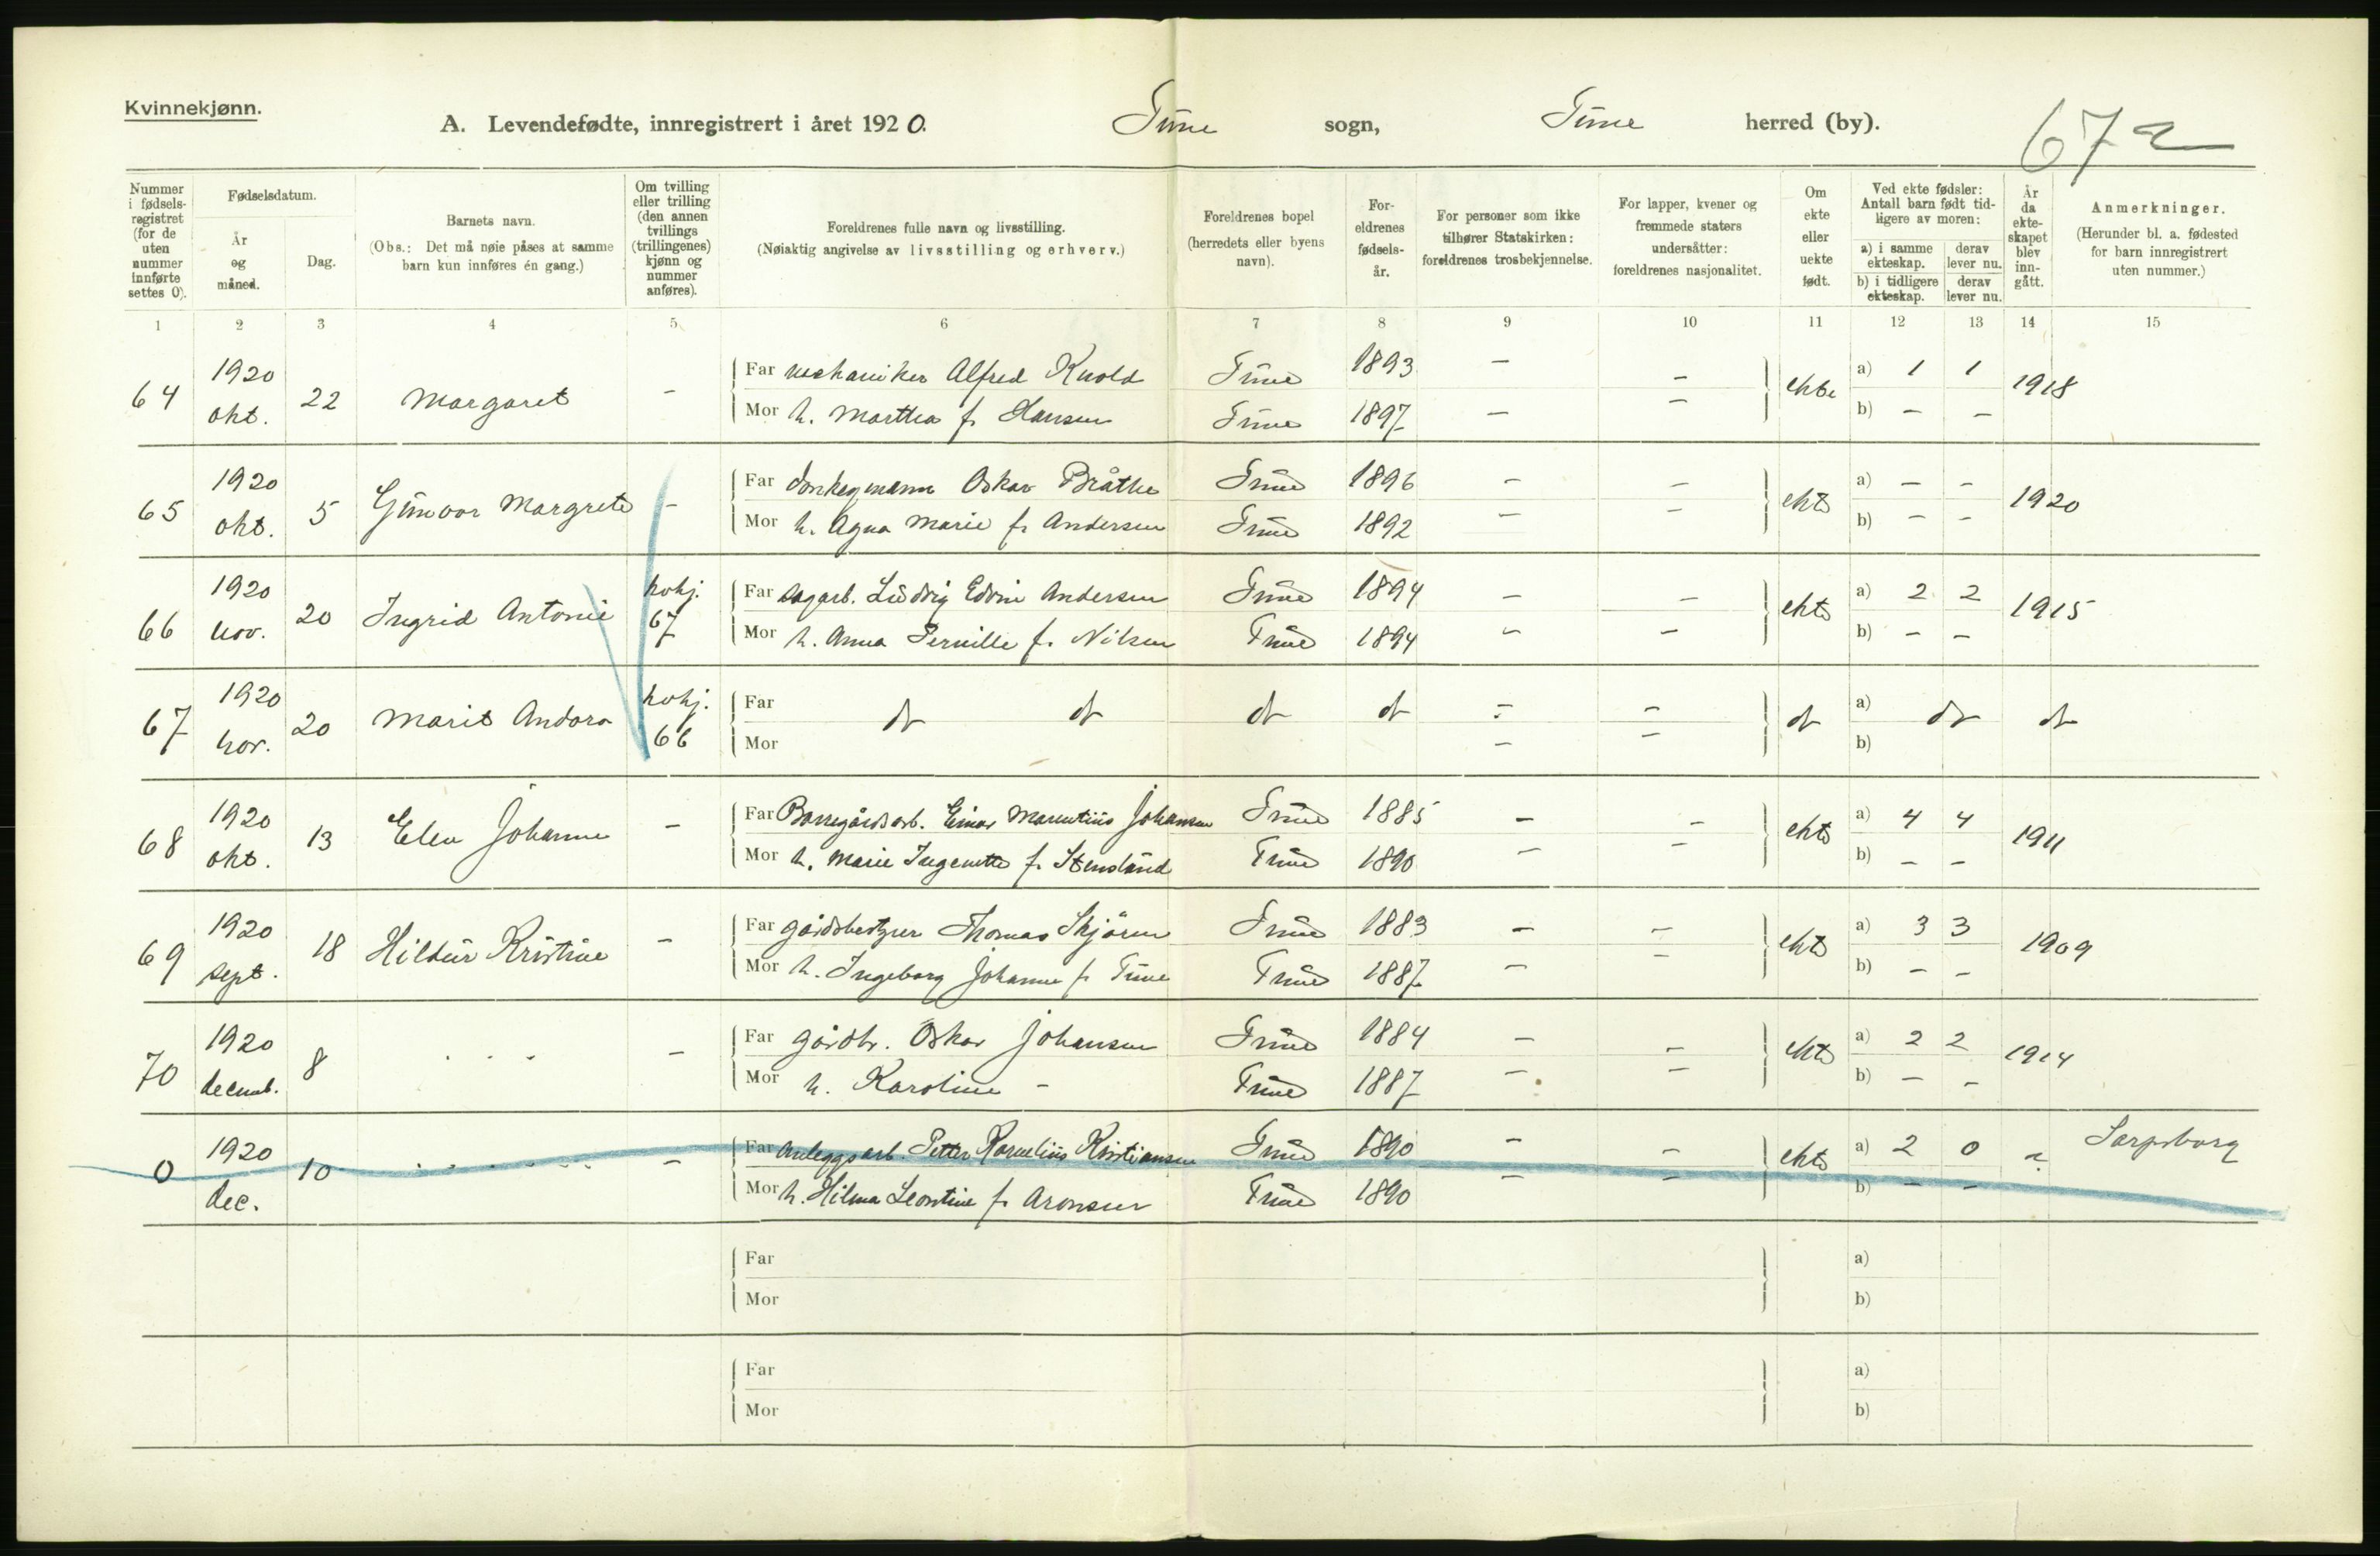 Kvinnekjønn.
A. Levendefødte, innregistrert i året 1920. Tune sogn, Tune herred (by). 67 a
Nummer i fødselsregistret (for de uten nummer innførte settes 0).
Fødselsdatum.
År og måned.
Dag.
Barnets navn.
(Obs.: Det må nøie påses at samme barn kun innføres én gang.)
Om tvilling eller trilling (den annen tvillings (trillingenes) kjønn og nummer anføres).
Foreldrenes fulle navn og livsstilling.
(Nøiaktig angivelse av livsstilling og erhverv.)
Foreldrenes bopel (herredets eller byens navn).
Foreldrenes fødselsår.
For personer som ikke tilhører Statskirken: foreldrenes trosbekjennelse.
For lapper, kvener og fremmede staters undersåtter: foreldrenes nasjonalitet.
Om ekte eller uekte født.
Ved ekte fødsler: Antall barn født tidligere av moren:
a) i samme ekteskap. derav lever nu.
b) i tidligere ekteskap. derav lever nu.
År da ekteskapet blev inngått.
Anmerkninger.
(Herunder bl. a. fødested for barn innregistrert uten nummer.)
1 2 3 4 5 6 7 8 9 10 11 12 13 14 15
64 1920 okt. 22 Margaret - Far mekaniker Alfred Knold Tune 1893 - - ekte a) 1 1 1918
Mor h. Marthea f. Hansen Tune 1897 - - b) - -
65 1920 okt. 5 Gunvor Margrete - Far Oskar Bråthe Tune 1896 - - ekte a) - - 1920
Mor h. Agna Marie f. Andersen Tune 1892 - - b) - -
66 1920 nov. 20 Ingrid Antonie kvkj. 67 Far sagarb. Ludvig Edvin Andersen Tune 1894 - - ekte a) 2 2 1915
Mor h. Anna Pernille f. Nilsen Tune 1894 - - b) - -
67 1920 nov. 20 Marit Andora kvkj. 66 Far do do do do - - do a) do do
Mor - - b)
68 1920 okt. 13 Elen Johanne - Far Borregårdsarb. Einar Marentius Johansen Tune 1885 - - ekte a) 4 4 1911
Mor h. Marie Ingenette f. Stensland Tune 1890 - - b) - -
69 1920 sept. 18 Hildur Kristine - Far gårdsbestyrer Thomas Skjøren Tune 1883 - - ekte a) 3 3 1909
Mor h. Ingeborg Johanne f. Tune Tune 1887 - - b) - -
70 1920 decemb. 8 . - - - Far gårdbr. Oskar Johansen Tune 1884 - - ekte a) 2 2 1914
Mor h. Karoline - Tune 1887 - - b) - -
0 1920 dec. 10 - Far Anleggsarb. Petter Kornelius Kristiansen Tune 1890 - - ekte a) 2 0 ? Sarpsborg
Mor h. Hilma Leontine f. Aronsen Tune 1890 - - b) - -
Far a)
Mor b)
Far a)
Mor b)